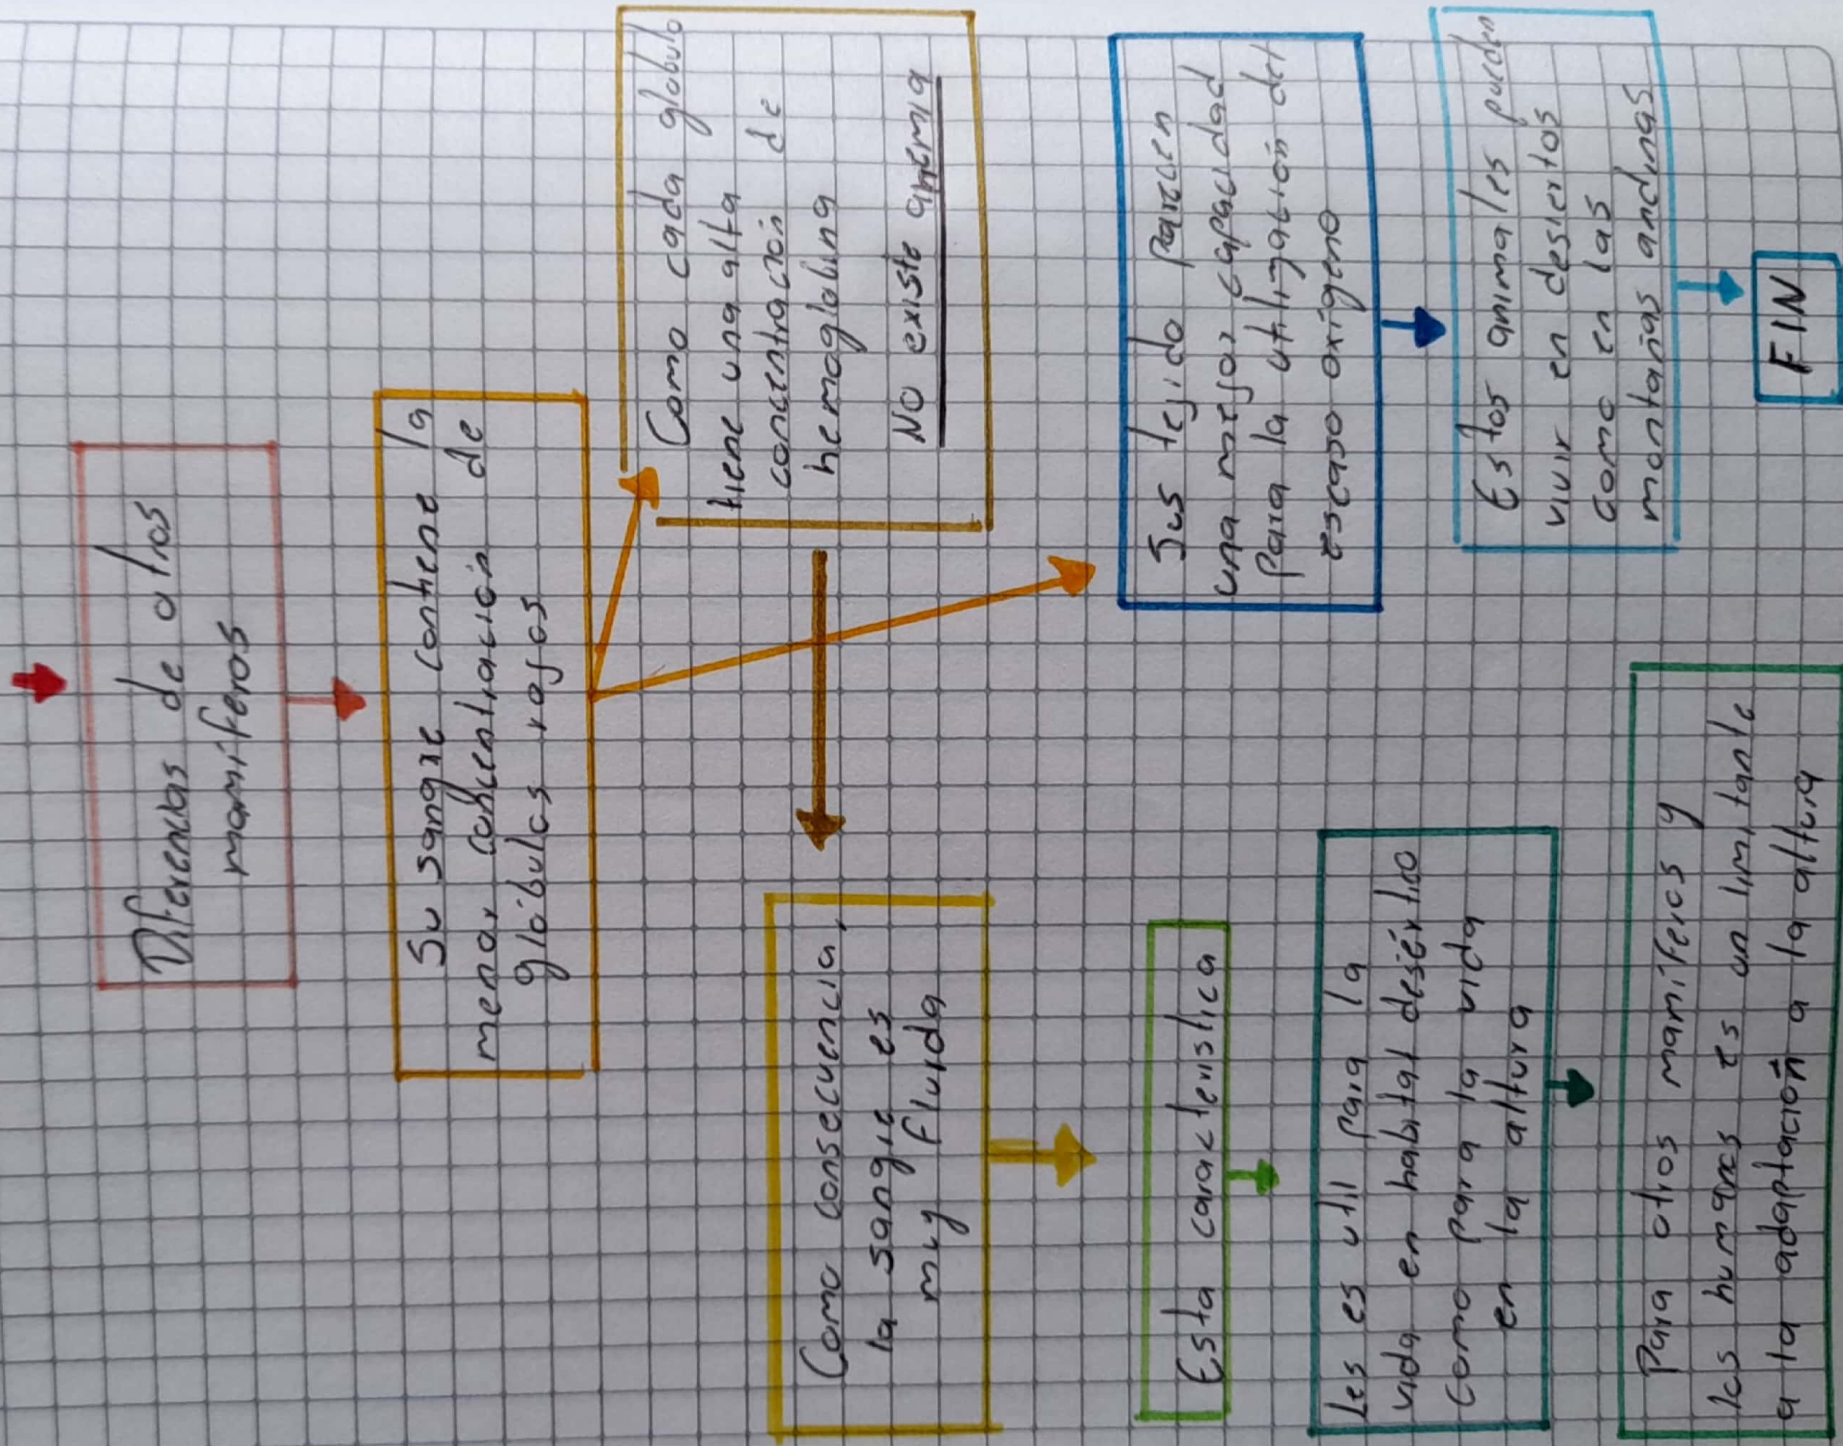 Diferencias de otros
mamíferos
Su sangre contiene la
menor concentración de
glóbulos rojos
Como cada globulo
tiene una alta
concentración de
hemoglobina
No existe anemia
Como consecuencia,
la sangre es
muy fluida
Esta caracteristica
les es util para la
vida en habitat desértico
como para la vida
en la altura
Para otros mamíferos y
los humanos es un limitante
a la adaptación a la altura
Sus tejido parecen
una mejor capacidad
para la utilización del
escaso oxigeno
Estos animales pueden
vivir en desiertos
como en las
montañas andinas
FIN